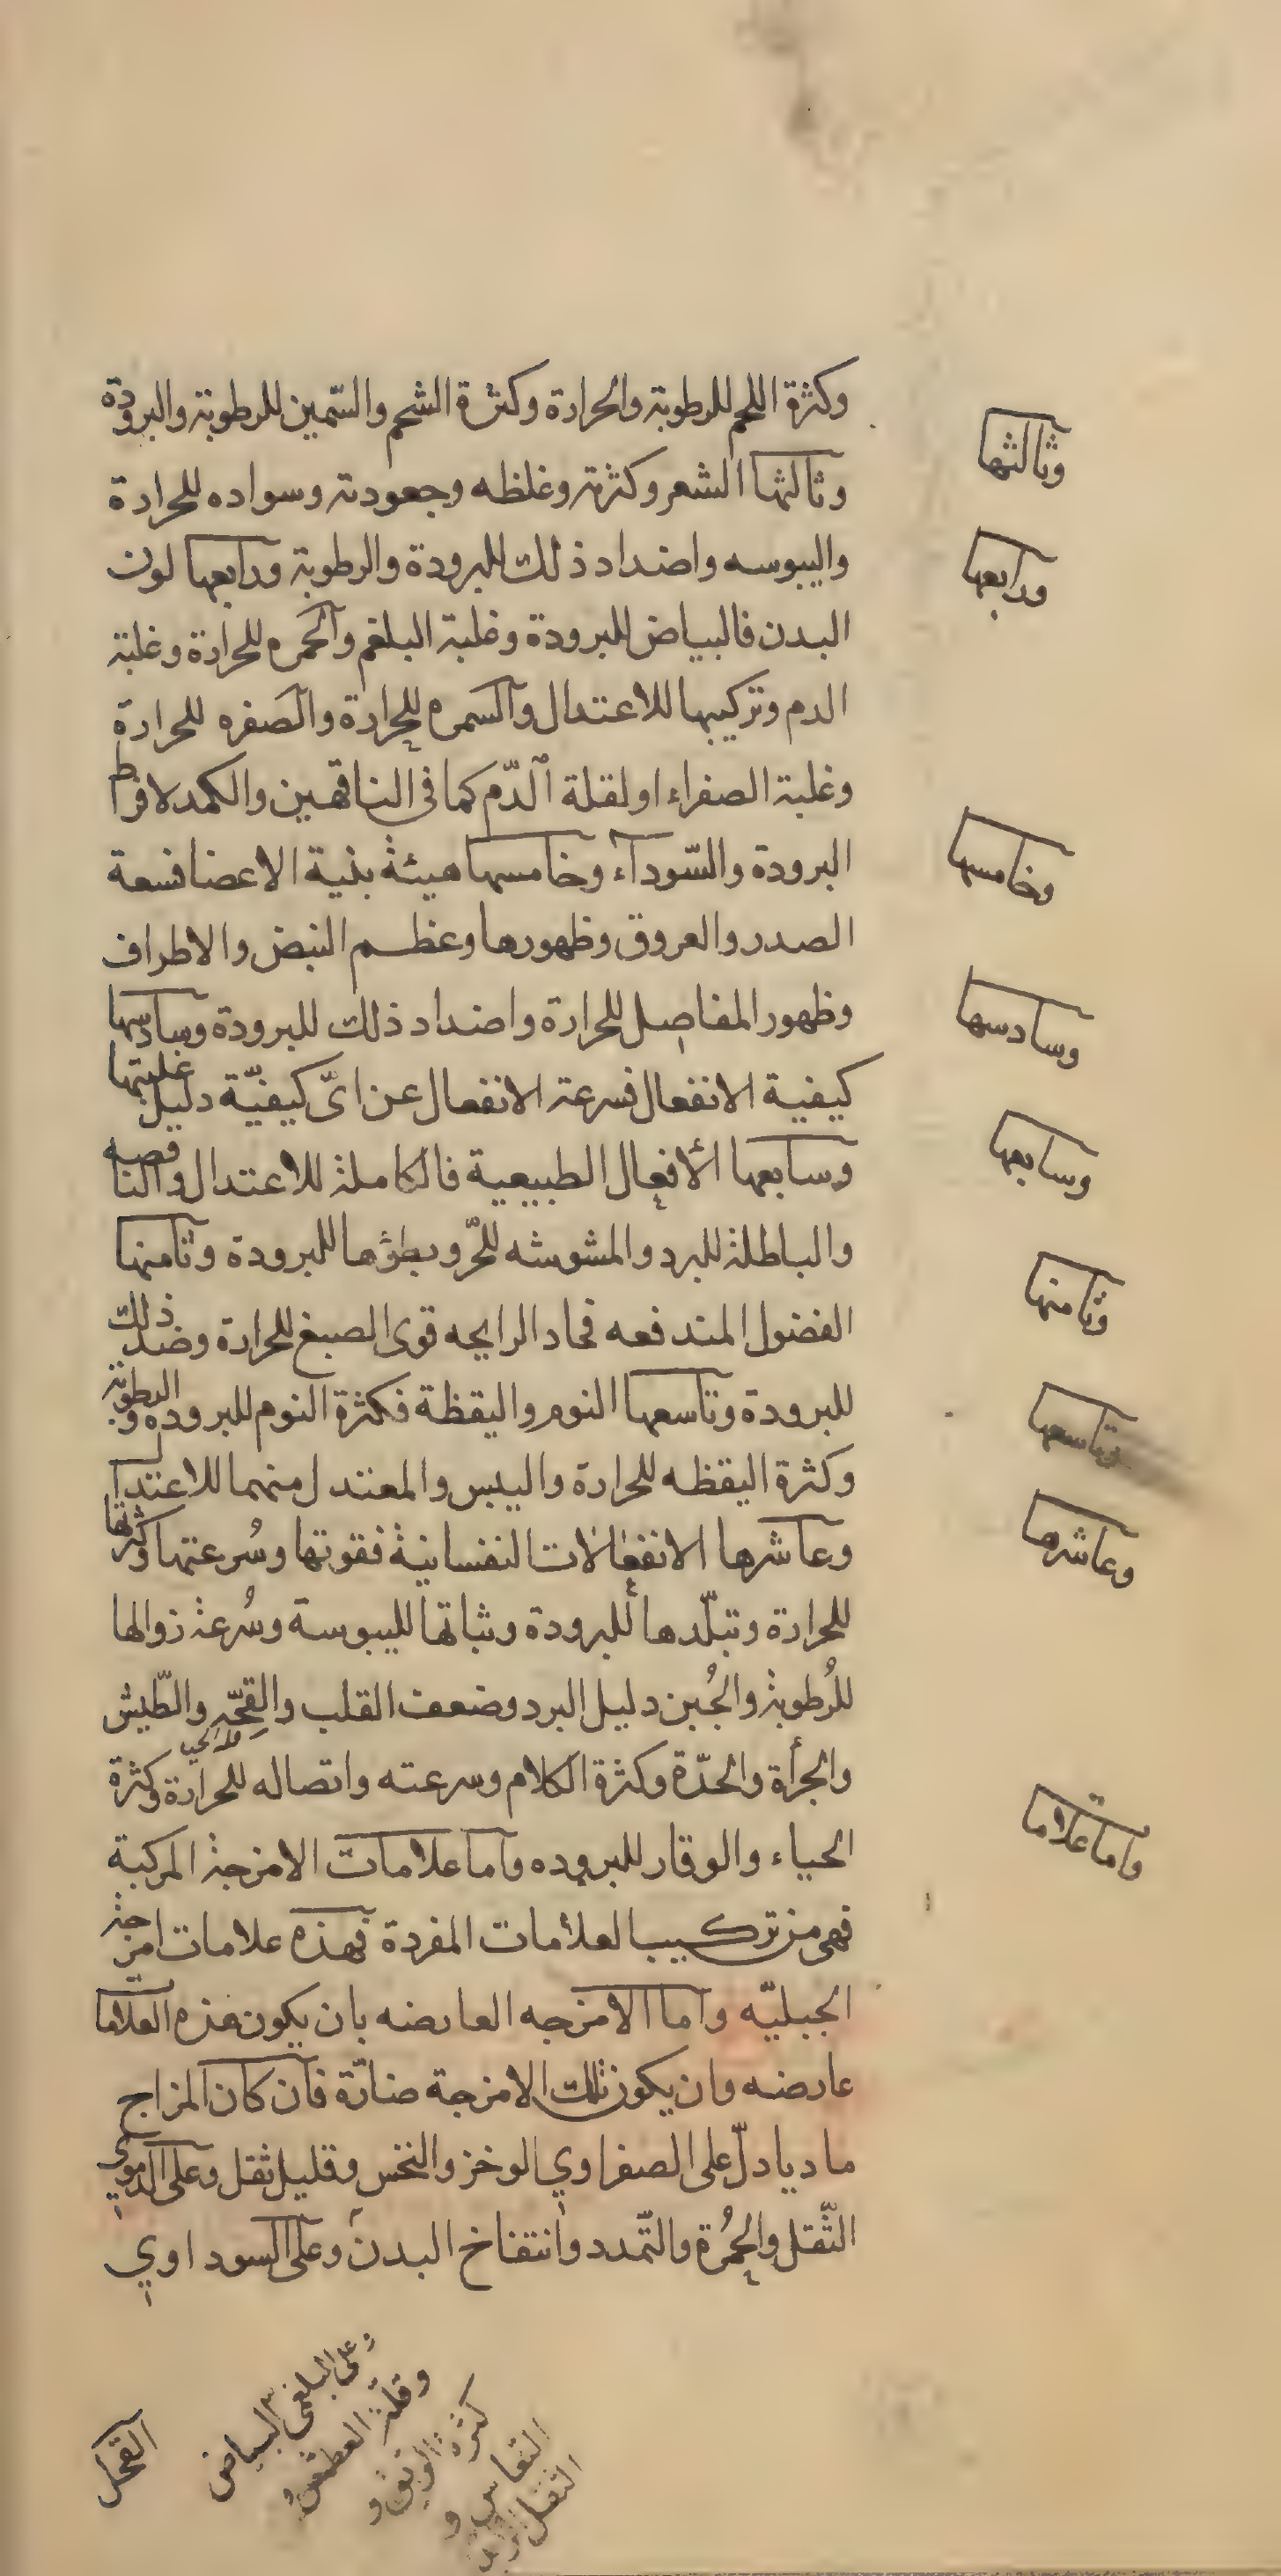 وكثرة اللحم للرطوبة والحرارة وكثرة الشحم والسّمين للرطوبة والبرودة
وثالثها الشعر وكثرته وغلظه وجعودته وسواده للحرارة
واليبوسه واضداد ذلك للبرودة والرطوبة ورابعها لون
البدن فالبياض للبرودة وغلبة البلغم والحمره للحرارة وغلبة
الدم وتركيبها للاعتدال والسمره للحرارة والصفره للحرارة
وغلبة الصفراء او لقلة الدّم كما فى الناقهين والكمد لافراط
البرودة والسّوداء وخامسها هيئة بنية الاعضا فسعة
الصدر والعروق وظهورها وعظم النبض والاطراف
وظهور المفاصل للحرارة واضداد ذلك للبرودة وسادسها
كيفية الانفعال فسرعة الانفعال عن اىّ كيفيّة دليل غلبتها
وسابعها الأفعال الطبيعية فالكاملة للاعتدال والناقصه
والباطلة للبرد والمشوشه للحّر وبطؤها للبرودة وثامنها
الفضول المندفعه فحاد الرايحه قوى الصبغ للحرارة وضد ذلك
للبرودة وتاسعها النوم واليقظة فكثرة النوم للبروده والرطوبة
وكثرة اليقظه للحرارة واليبس والمعتدل منهما للاعتدال
وعاشرها الانفعالات النفسانية فقوتها وسُرعتها وكثرتها
للحرارة وتبلّدها للبرودة وثباتها لليبوسة وسُرعة زوالها
للُرطوبة والجُبن دليل البرد وضعف القلب والقِحّه والطّيش
والجرأة والحدّة وكثرة الكلام وسرعته واتصاله للحرارة وكثرة
الحياء والوقار للبروده واما علامات الامزجة المركبة
فهى من تركيب العلامات المفردة فهذه علامات امزجة
الجبليّه واما الامزجه العارضه بان يكون هذه العلامات
عارضه وان يكون تلك الامزجة ضارّة فان كان المزاج
ماديا دلّ على الصفراوي الوخز والنخس وقليل ثقل وعلى الدموي
الثّقل والحُمرة والتّمدد وانتفاخ البدن وعلى السوداوي
القحل
وعلى البلغمى البياض
وقلة العطش و
كثرة الريق و
النعاس و
الثقل
وثالثها
ورابعها
وخامسها
وسادسها
وسابعها
وثامنها
وتاسعها
وعاشرها
واما علامات